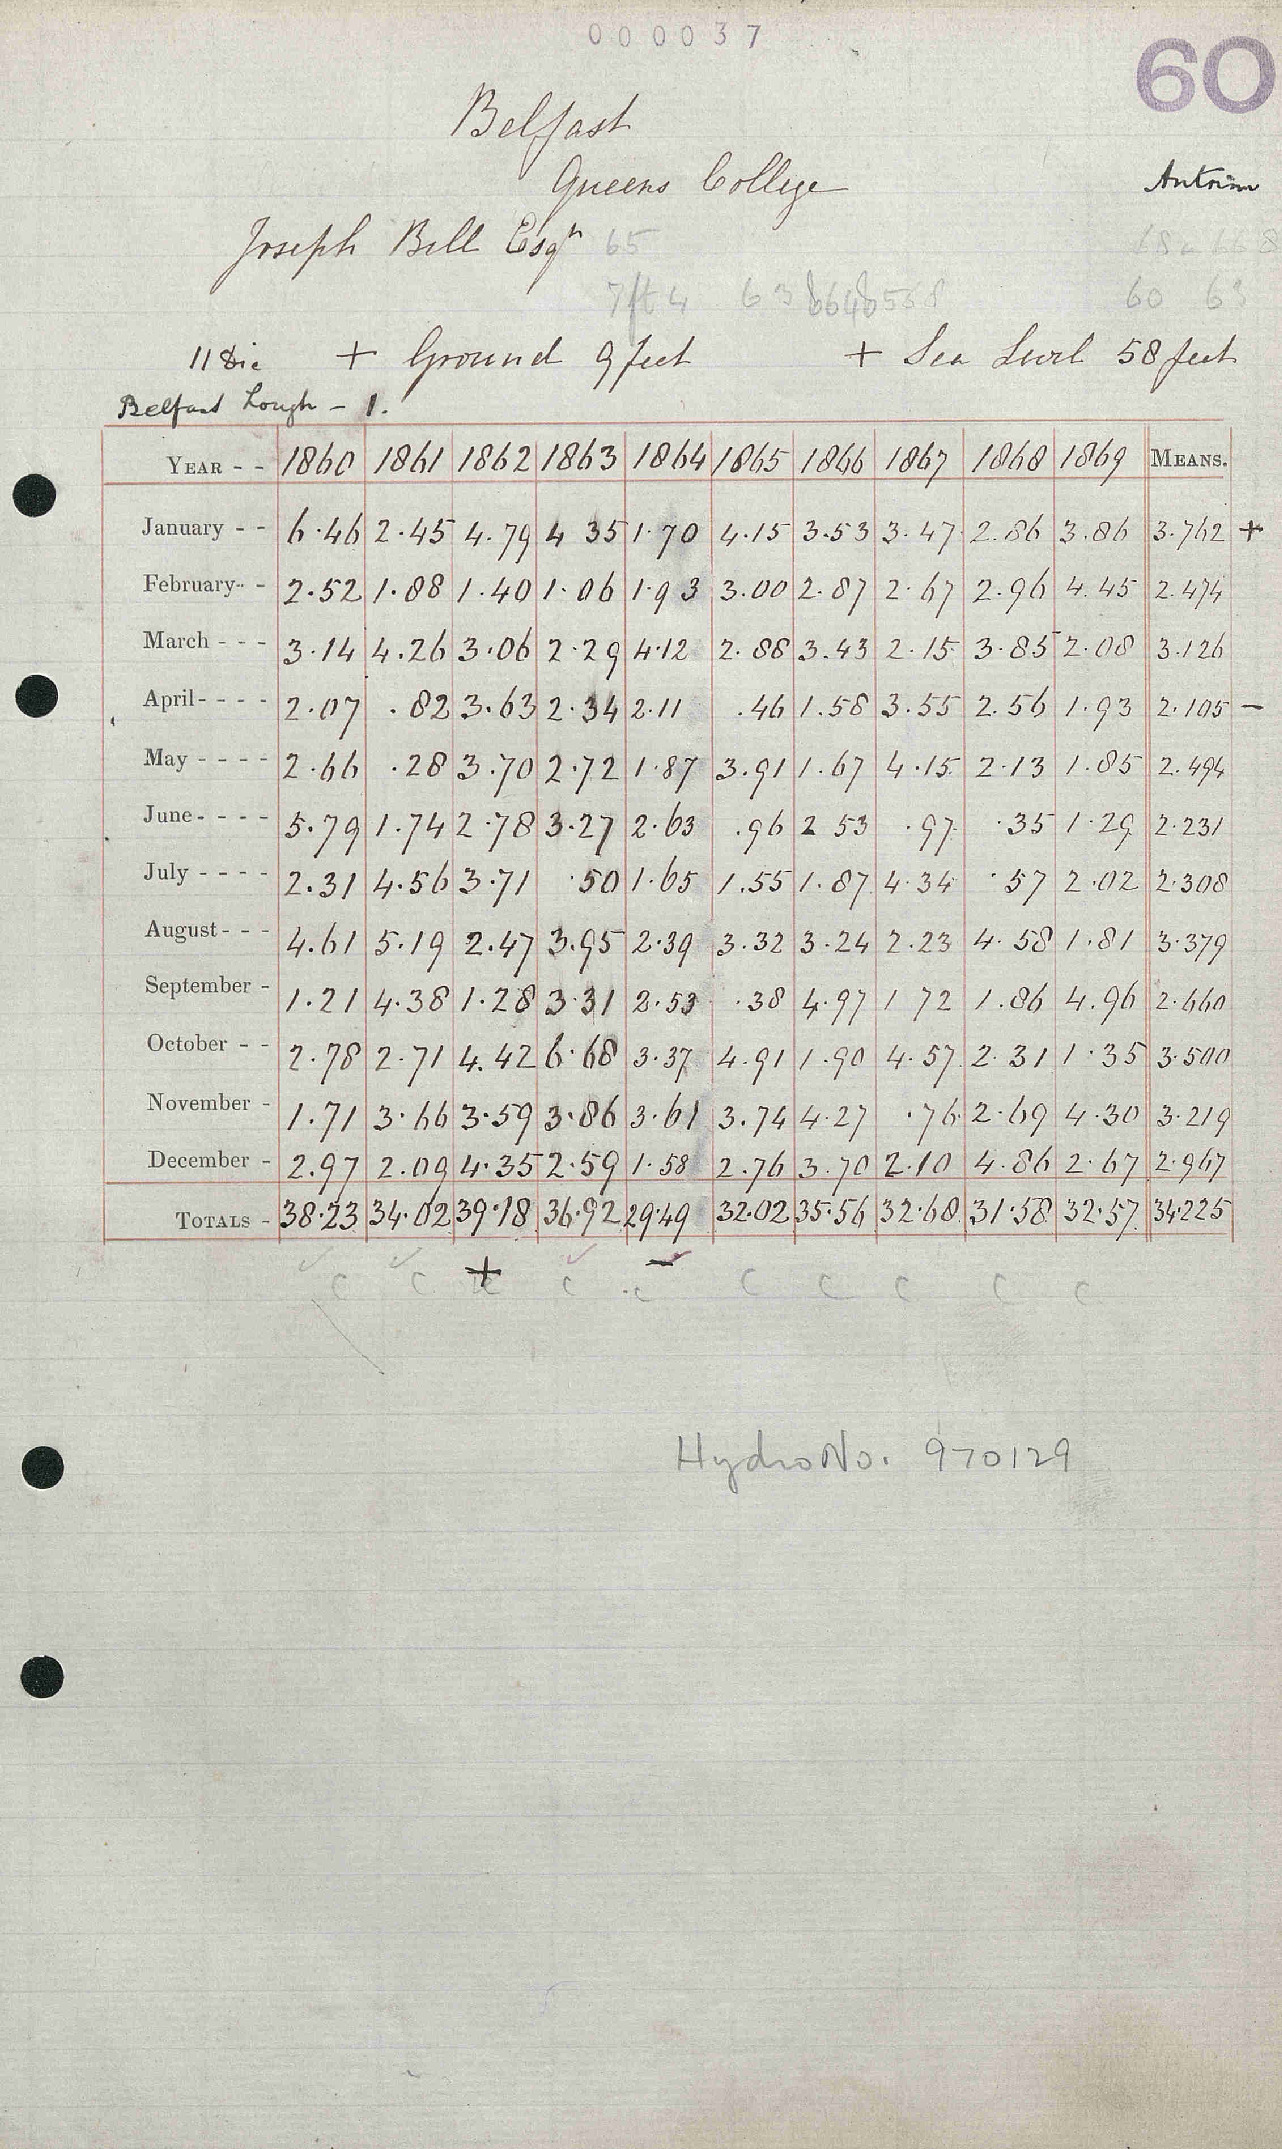 000037
60
Belfast
Queens College
Antrim
Joseph Bell Esqr 65
7ft 4 63 60 63
11 Die + Ground 9 feet + Sea Level 58 feet
Belfast Lough - 1.
YEAR - - 1860 1861 1862 1863 1864 1865 1866 1867 1868 1869 MEANS.
January - - 6.46 2.45 4.79 4 35 1.70 4.15 3.53 3.47 2.86 3.86 3.762 +
February - - 2.52 1.88 1.40 1.06 1.93 3.00 2.87 2.67 2.96 4.45 2.474
March - - - 3.14 4.26 3.06 2.29 4.12 2.88 3.43 2.15 3.85 2.08 3.126
April - - - - 2.07 .82 3.63 2.34 2.11 .46 1.58 3.55 2.56 1.93 2.105 -
May - - - - 2.66 .28 3.70 2.72 1.87 3.91 1.67 4.15 2.13 1.85 2.494
June - - - - 5.79 1.74 2.78 3.27 2.63 .96 2 53 .97 .35 1.29 2.231
July - - - - 2.31 4.56 3.71 .50 1.65 1.55 1.87 4.34 .57 2.02 2.308
August - - - 4.61 5.19 2.47 3.95 2.39 3.32 3.24 2.23 4.58 1.81 3.379
September - 1.21 4.38 1.28 3.31 2.53 .38 4.97 1 72 1.86 4.96 2.660
October - - 2.78 2.71 4.42 6.68 3.37 4.91 1.90 4.57 2.31 1.35 3.500
November - 1.71 3.66 3.59 3.86 3.61 3.74 4.27 .76 2.69 4.30 3.219
December - 2.97 2.09 4.35 2.59 1.58 2.76 3.70 2.10 4.86 2.67 2.967
TOTALS - 38.23 34.02 39.18 36.92 29.49 32.02 35.56 32.68 31.58 32.57 34.225
c c + c c c c c c c
Hydro No. 970129